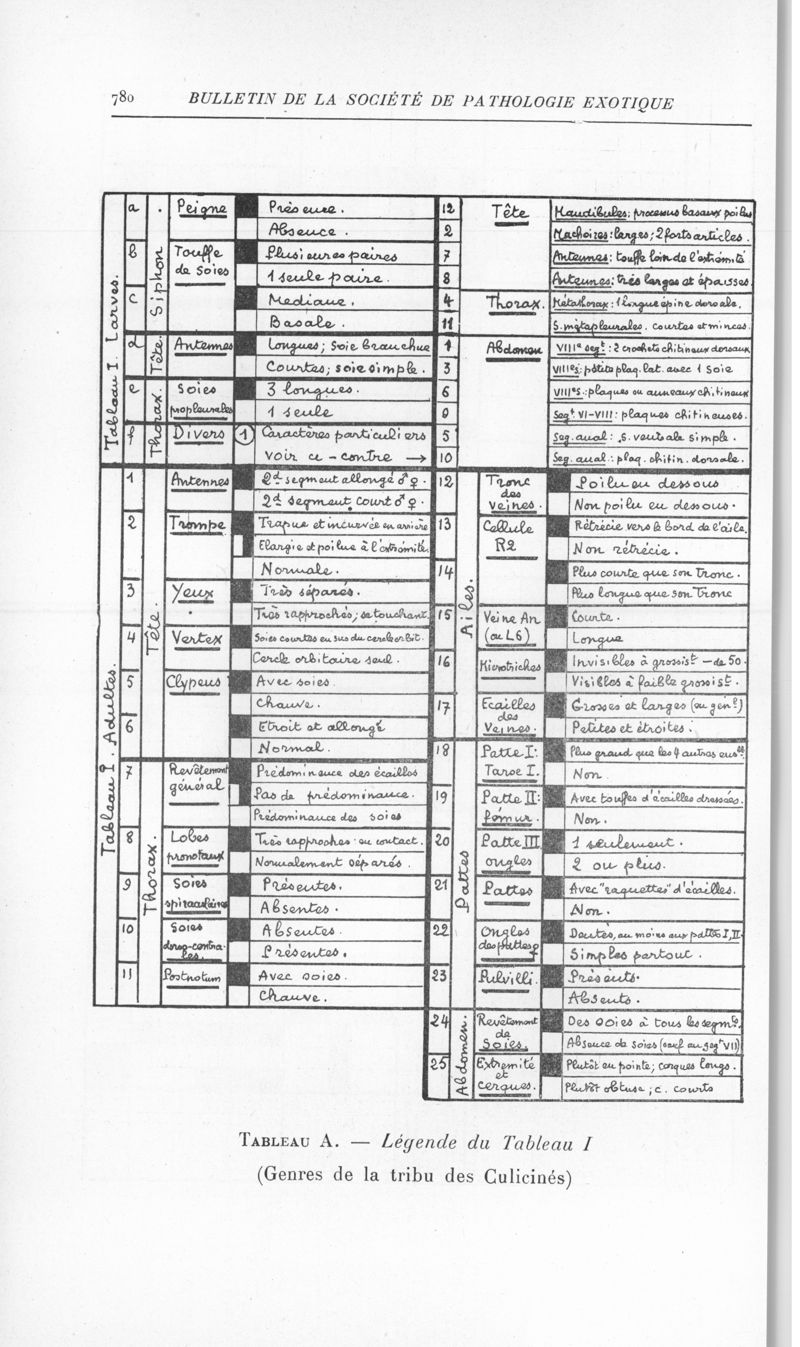 780
BULLETIN DE LA SOCIÉTÉ DE PATHOLOGIE EXOTIQUE
Tableau I. Larves.
Siphon
a Peigne Présence.
Absence.
b Touffe Plusieures paires
de Soies 1 seule paire.
c Mediane.
Basale.
Tête.
d Antennes Longues; Soie branchue
Courtes; soie simple.
Thorax.
e Soies 3 longues.
propleurales 1 seule
f Divers 1 Caractères particuliers
voir ci-contre →
12 Tête Mandibules; processus basaux poilus
2 Machoires: larges; 2 forts articles.
7 Antennes: touffe loin de l'extrémité
8 Antennes: très larges et épaisses
4 Thorax. Métathorax: 1 longue épine dorsale.
11 S. métapleurales. courtes et minces.
1 Abdomen VIIIe segt: 2 crochets chitineux dorsaux
3 VIIIe s: petite plaq. lat. avec 1 soie
6 VIIIe s.: plaques ou anneaux chitineux
9 Segt. VI-VIII: plaques chitineuses.
5 Seg. anal: s. ventrale simple.
10 Seg. anal: plaq. chitin. dorsale.
Tableau I. Adultes.
Tête.
1 Antennes 2d segment allongé ♂ ♀.
2d segment court ♂ ♀.
2 Trompe Trapue et incurvée en arrière
Elargie et poilue à l'extrémité.
Normale.
3 Yeux Très séparés.
Très rapprochés; se touchant
4 Vertex Soies courtes en sus du cercle orbit.
Cercle orbitaire seul.
5 Clypeus Avec soies
Chauve.
6 Etroit et allongé
Normal.
Thorax.
7 Revêtement Prédominance des écailles
général Pas de prédominance.
Prédominance des soies
8 Lobes Très rapprochés ou contact.
pronotaux Normalement séparés.
9 Soies Présentes.
spiraculaires Absentes.
10 Soies Absentes.
dorso-centra-
les. Présentes.
11 Postnotum Avec soies.
Chauve.
Ailes.
12 Tronc Poilu en dessous
des
veines. Non poilu en dessous.
13 Cellule Rétrécie vers le bord de l'aile.
R2 Non rétrécie.
14 Plus courte que son Tronc.
Plus longue que son Tronc
15 Veine An Courte.
(ou L6) Longue
16 Microtriches Invisibles à grossist - de 50.
Visibles à faible grossist.
17 Ecailles Grosses et larges (en genl)
des
Veines. Petites et étroites.
Pattes
18 Patte I: Plus grand que les 4 autres
Tarse I. Non
19 Patte II: Avec touffes d'écailles dressées.
fémur. Non.
20 Patte III 1 seulement.
ongles 2 ou plus.
21 Pattes Avec "raquettes" d'écailles.
Non.
22 Ongles Dentés, au moins aux pattes I, II.
des pattes ♀ Simples partout.
23 Pulvilli. Présents.
Absents.
Abdomen.
24 Revêtement Des soies à tous les segmts.
de
Soies. Absence de soies (sauf au segt VII)
25 Extremité Plutôt en pointe; cerques longs.
et
cerques. Plutôt obtuse; c. courts
TABLEAU A. — Légende du Tableau I
(Genres de la tribu des Culicinés)